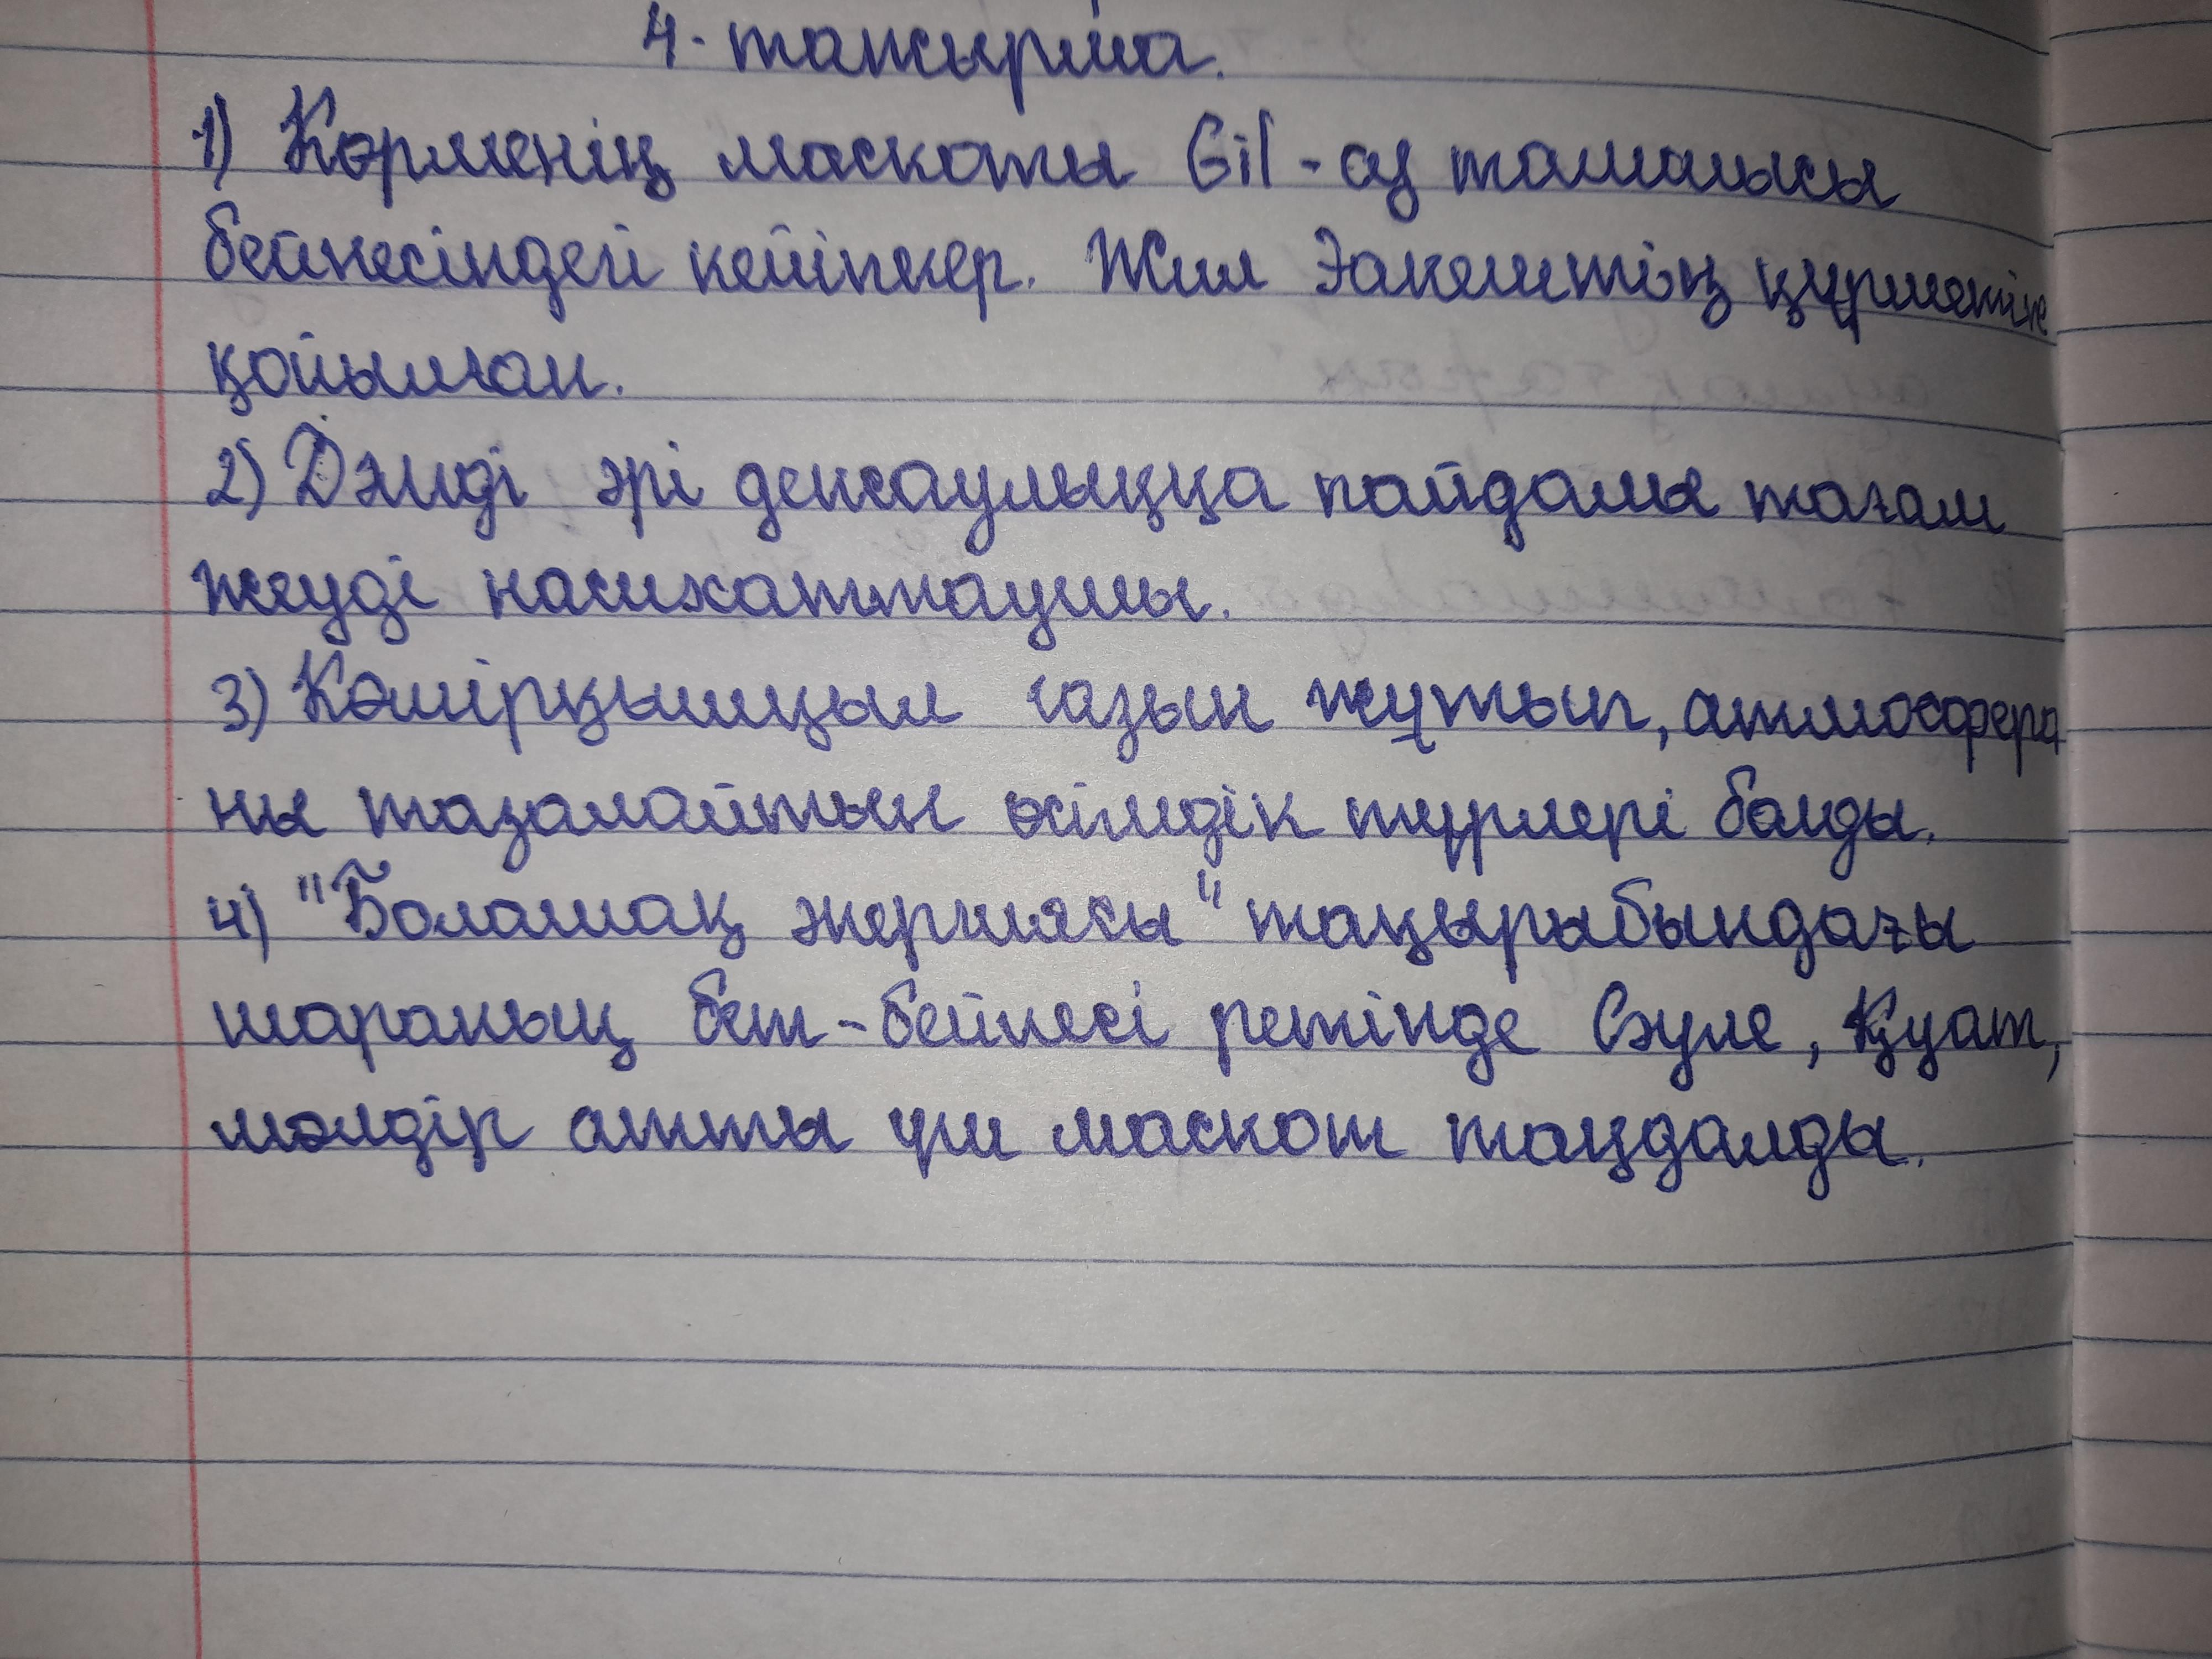 4-тапсырма.
1) Көрменің маскоты Gil-су тамшысы
бейнесіндегі кейіпкер. Жил Эанештің құрметіне
қойылған.
2) Дәмді әрі денсаулыққа пайдалы тағам
жеуді насихаттаушы.
3) Көмірқышқыл газын жұтып, атмосфера
ны тазалайтын өсімдік түрлері болды.
4) "Болашақ энергиясы" тақырыбындағы
шараның бет-бейнесі ретінде Сәуле, Қуат,
мөлдір атты үш маскот таңдалды.